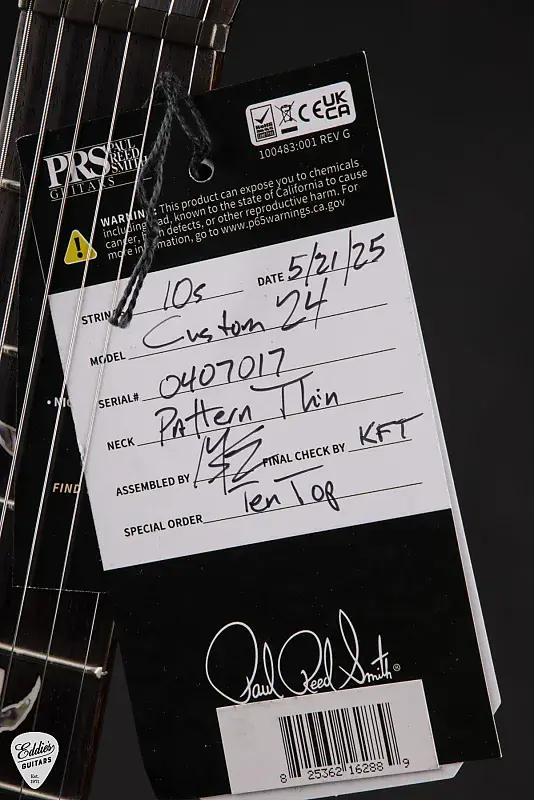 PRS PAUL REED SMITH
GUITARS
RoHS
CE UK CA
100483:001 REV G
WARNING: This product can expose you to chemicals
including lead, known to the state of California to cause
cancer, birth defects, or other reproductive harm. For
more information, go to www.p65warnings.ca.gov
STRINGS 10s DATE 5/21/25
MODEL Custom 24
SERIAL# 0407017
NECK Pattern Thin
ASSEMBLED BY FINAL CHECK BY KFT
SPECIAL ORDER Ten Top
FIND
Paul Reed Smith®
8 25362 16288 9
Eddie's
GUITARS
Est.